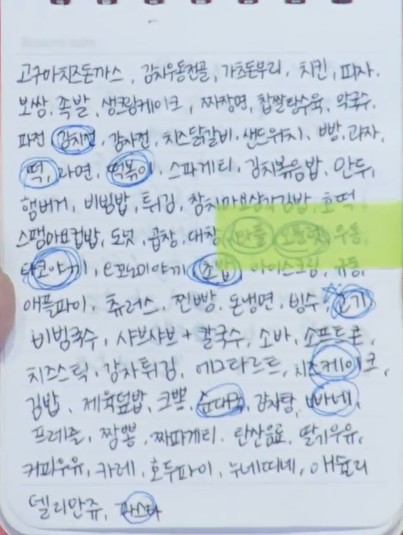 고구마치즈돈까스, 김치우동전골, 가츠돈부리, 치킨, 피자,
보쌈, 족발, 생크림케이크, 짜장면, 찹쌀탕수육, 막국수,
파전, 김치전, 감자전, 치즈닭갈비, 샌드위치, 빵, 과자,
떡, 라면, 떡볶이, 스파게티, 김치볶음밥, 만두,
햄버거, 비빔밥, 튀김, 참치마요삼각김밥, 호떡,
스팸마요컵밥, 도넛, 곱창, 대창, 와플, 초콜렛, 우동,
타코야끼, 오코노미야끼, 초밥, 아이스크림,
애플파이, 츄러스, 찐빵, 돈냉면, 빙수, 고기,
비빔국수, 샤브샤브+칼국수, 소바, 소프트콘,
치즈스틱, 감자튀김, 에그타르트, 치즈케이크,
김밥, 제육덮밥, 크뽕, 순대국, 감자탕, 빠네,
프레즐, 짬뽕, 짜파게티, 탄산음료, 딸기우유,
커피우유, 카레, 호두파이, 누네띠네,
델리만쥬, 파스타